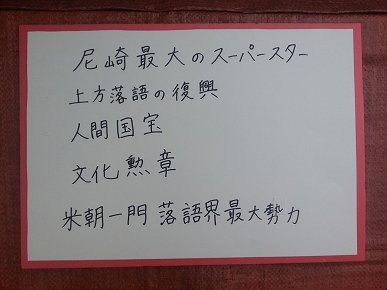 尼崎最大のスーパースター
上方落語の復興
人間国宝
文化勲章
米朝一門 落語界最大勢力